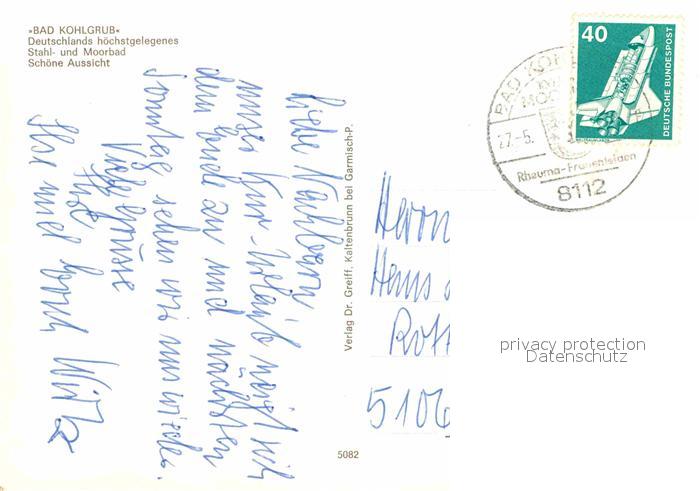 »BAD KOHLGRUB«
Deutschlands höchstgelegenes
Stahl- und Moorbad
Schöne Aussicht
Liebe Nachbarn,
unser Kur-Urlaub neigt sich
dem Ende zu und nächsten
Sonntag sehen wir uns wieder.
Viele Grüsse
Ilse und Ernst
Verlag Dr. Greiff, Kaltenbrunn bei Garmisch-P.
5082
40
DEUTSCHE BUNDESPOST
BAD KOH
27.-5.
Rheuma-Frauenleiden
8112
Herrn
Hans
Rott
5106
privacy protection
Datenschutz